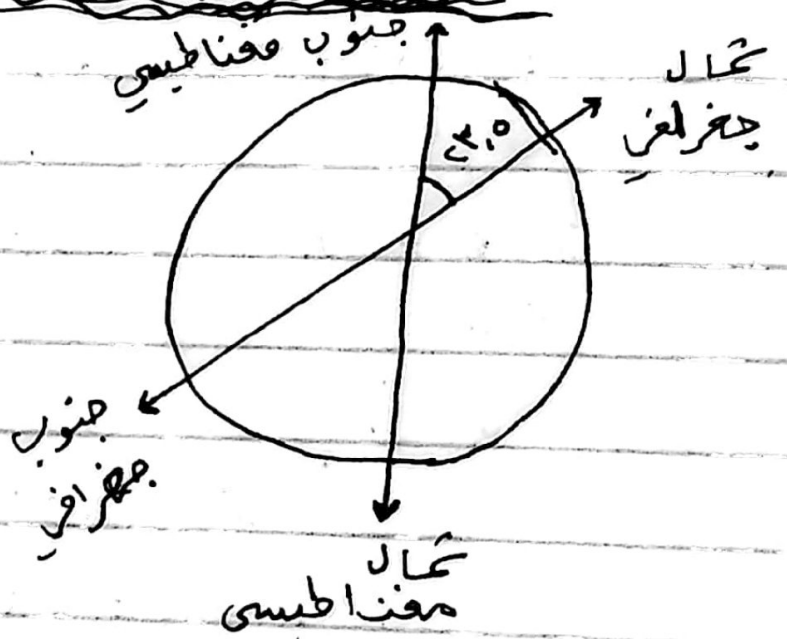 جنوب مغناطيسي
شمال
جغرافي
٢٣,٥
جنوب
جغرافي
شمال
مغناطيسي